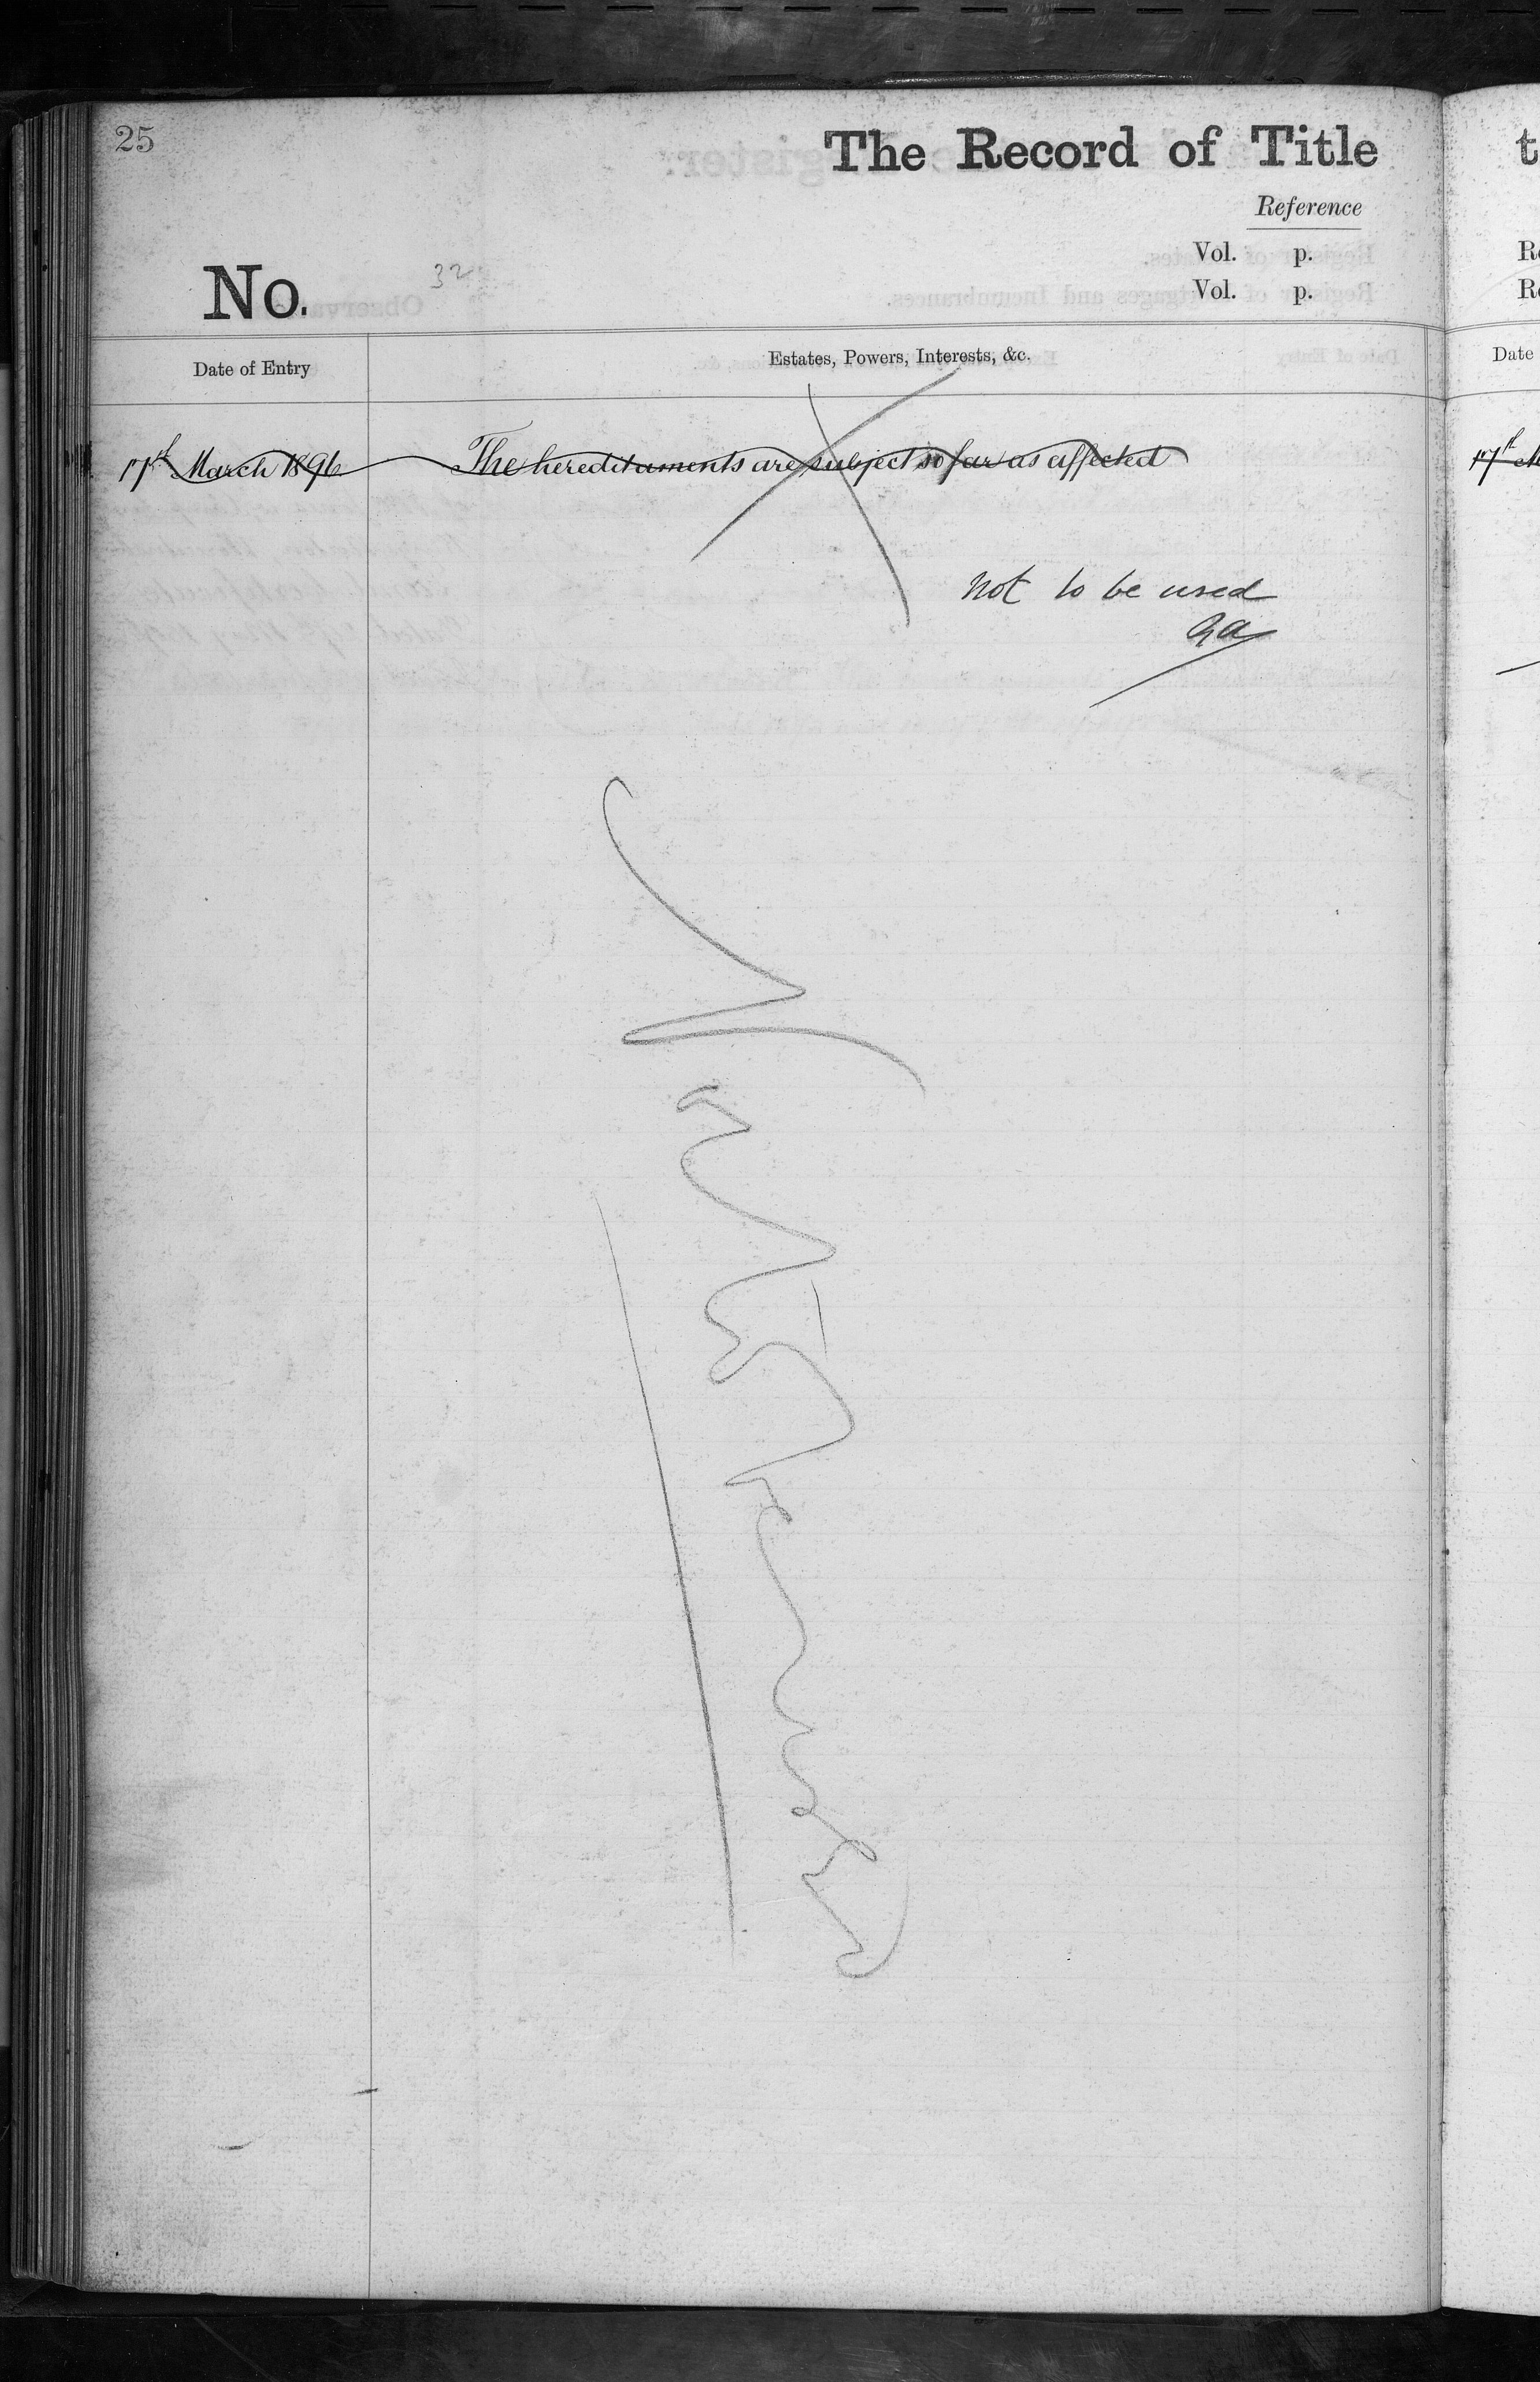 25
The Record of Title
Reference
Vol. p.
Vol. p.
No. 32
Date of Entry
Estates, Powers, Interests, &c.
17th March 1896 The hereditaments are subject so far as affected
Not to be used
t
Re
Re
Date
17th M